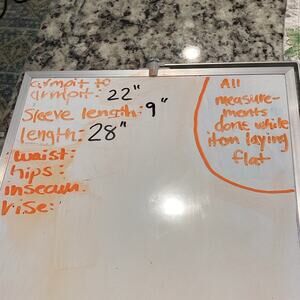 armpit to
armpit: 22"
Sleeve length: 9"
length: 28"
waist:
hips:
inseam:
rise:
All
measure-
ments
done while
item laying
flat